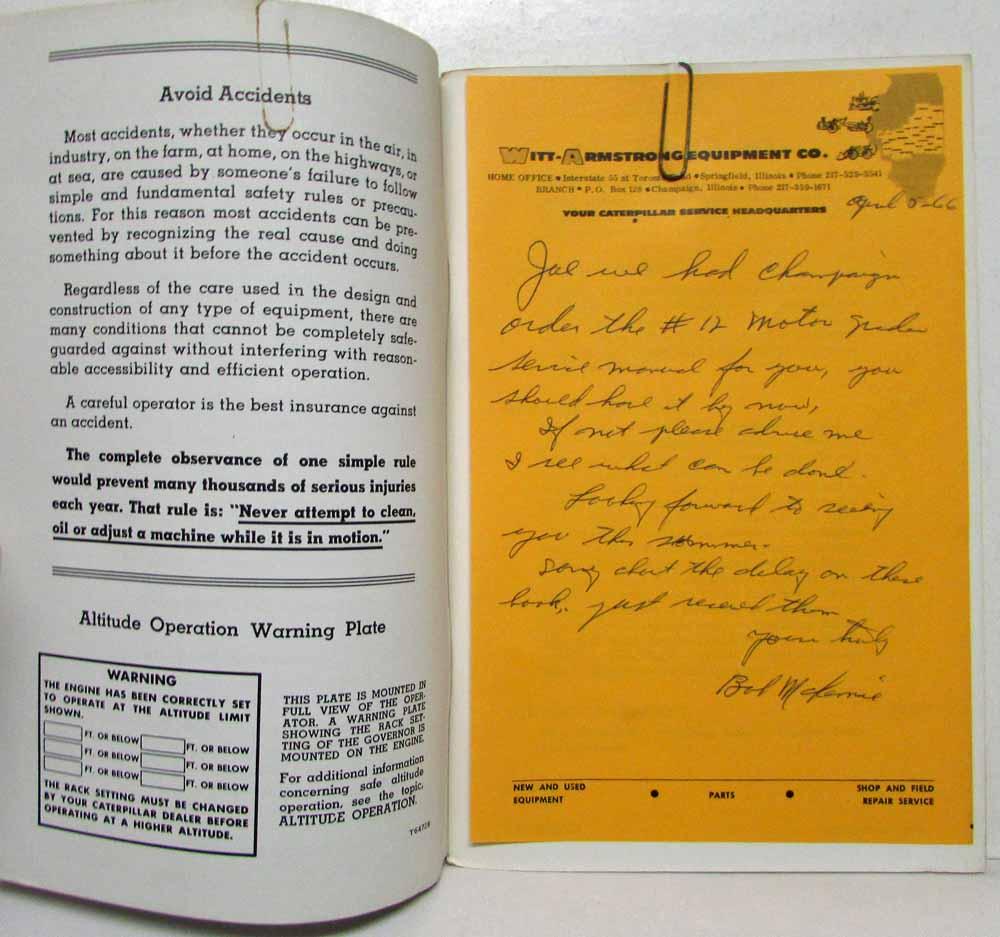 Avoid Accidents
Most accidents, whether they occur in the air, in
industry, on the farm, at home, on the highways, or
at sea, are caused by someone's failure to follow
simple and fundamental safety rules or precau-
tions. For this reason most accidents can be pre-
vented by recognizing the real cause and doing
something about it before the accident occurs.
Regardless of the care used in the design and
construction of any type of equipment, there are
many conditions that cannot be completely safe-
guarded against without interfering with reason-
able accessibility and efficient operation.
A careful operator is the best insurance against
an accident.
The complete observance of one simple rule
would prevent many thousands of serious injuries
each year. That rule is: "Never attempt to clean,
oil or adjust a machine while it is in motion."
Altitude Operation Warning Plate
WARNING
THE ENGINE HAS BEEN CORRECTLY SET
TO OPERATE AT THE ALTITUDE LIMIT
SHOWN.
FT. OR BELOW FT. OR BELOW
FT. OR BELOW FT. OR BELOW
FT. OR BELOW FT. OR BELOW
THE RACK SETTING MUST BE CHANGED
BY YOUR CATERPILLAR DEALER BEFORE
OPERATING AT A HIGHER ALTITUDE.
THIS PLATE IS MOUNTED IN
FULL VIEW OF THE OPER-
ATOR. A WARNING PLATE
SHOWING THE RACK SET-
TING OF THE GOVERNOR IS
MOUNTED ON THE ENGINE.
For additional information
concerning safe altitude
operation, see the topic,
ALTITUDE OPERATION.
WITT-ARMSTRONG EQUIPMENT CO.
HOME OFFICE • Interstate 55 at • Springfield, Illinois • Phone 217-529-5541
BRANCH • P.O. Box 128 • Champaign, Illinois • Phone 217-359-1671
YOUR CATERPILLAR SERVICE HEADQUARTERS
April 5-66
Joe we had Champaign
order the #12 Motor Grader
service manual for you, you
should have it by now,
If not please advise me
I see what can be done.
Looking forward to seeing
you this summer.
Sorry about the delay on these
book, just received them
Yours truly
Bob
NEW AND USED
EQUIPMENT
•
PARTS
•
SHOP AND FIELD
REPAIR SERVICE